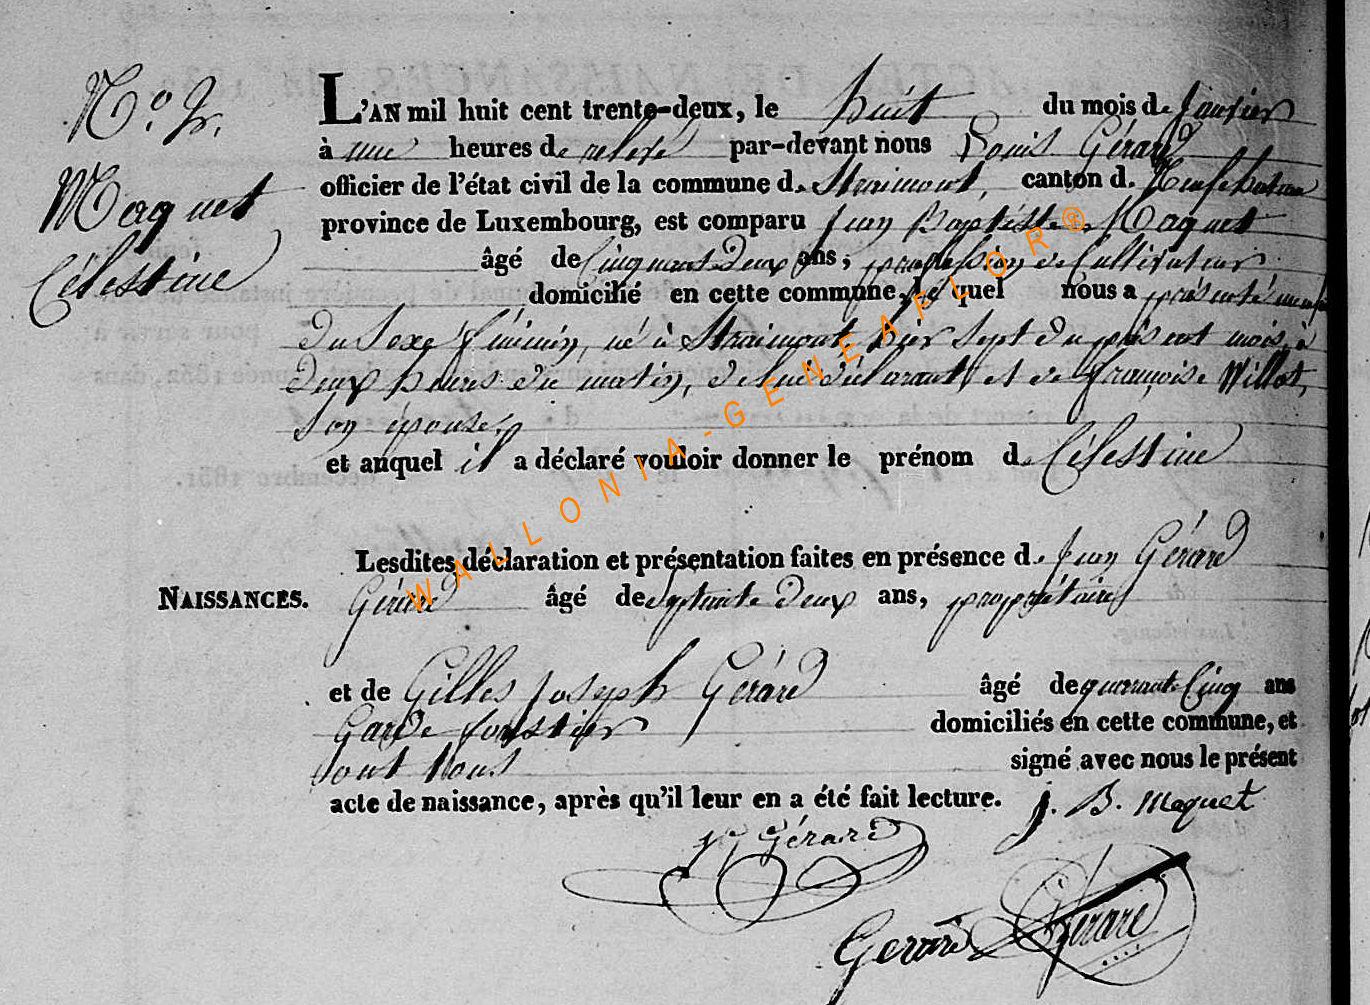 L'AN mil huit cent trente-deux, le huit du mois de Janvier
à une heures de relevé par-devant nous Louis Gérard
officier de l'état civil de la commune d. Straimont, canton d. Neufchateau
province de Luxembourg, est comparu Jean Baptiste Maquet
âgé de Cinquante Deux ans, profession de Cultivateur
domicilié en cette commune, Lequel nous a présenté un enfant
du Sexe féminin, né à Straimont, hier Sept du présent mois, à
Deux heures du matin, de lui déclarant, et de françoise Willot,
Son épouse,
et auquel il a déclaré vouloir donner le prénom de Célestine
N.o
Maquet
Célestine
Lesdites déclaration et présentation faites en présence d. Jean Gérard
NAISSANCES.
Gérard âgé de Septante Deux ans, propriétaire
et de Gilles Joseph Gérard âgé de quarante Cinq ans
Garde forestier domiciliés en cette commune, et
Sont tous signé avec nous le présent
acte de naissance, après qu'il leur en a été fait lecture.
J. B. Maquet
Gérard
Gerard Gerard
WALLONIA-GENEAFLOR®